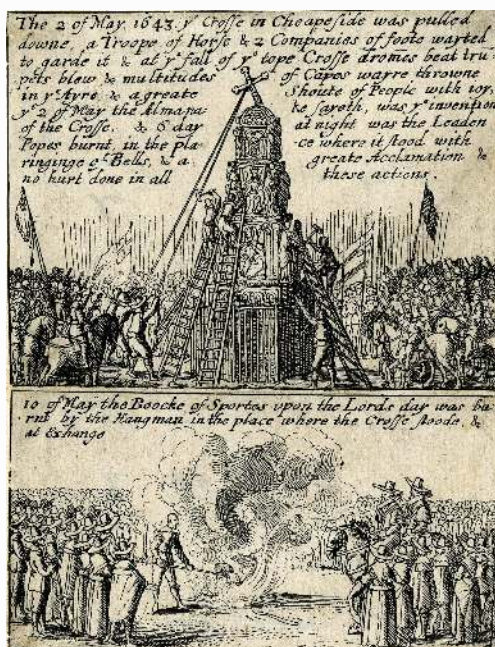 The 2 of May. 1643. yͤ Crosse in Cheapeside was pulled
downe, a Troope of Horse & 2 Companies of foote wayted
to garde it & at yͤ fall of yͤ tope Crosse dromes beat tru-
pets blew & multitudes of Capes wayre throwne
in yͤ Ayre, & a greate Shoute of People with ioy,
yͤ 2 of May the Almana ke sayeth, was yͤ invention
of the Crosse, & 6 day at night was the Leaden
Popes burnt, in the pla ce where it stood with
ringinge of Bells, & a greate Acclamation &
no hurt done in all these actions.
10 of May the Boocke of Sportes upon the Lords day was bu
rnt by the Hangman in the place where the Crosse stoode, &
at Exhange